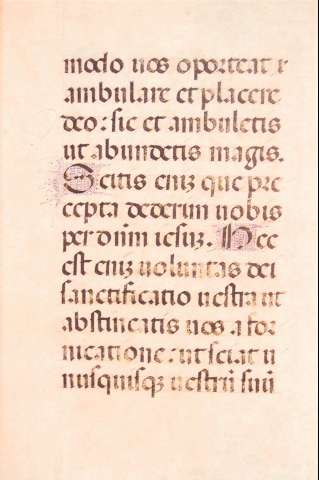 modo uos oporteat
ambulare et placere
deo: sic et ambuletis
ut abundetis magis.
Scitis eniʒ que pre
cepta dederim uobis
per dn̄m iesuʒ. Hec
est eniʒ uoluntas dei
sanctificatio uestra ut
abstineatis uos a for
nicatione: ut sciat u
nusquisqʒ uestrū suū